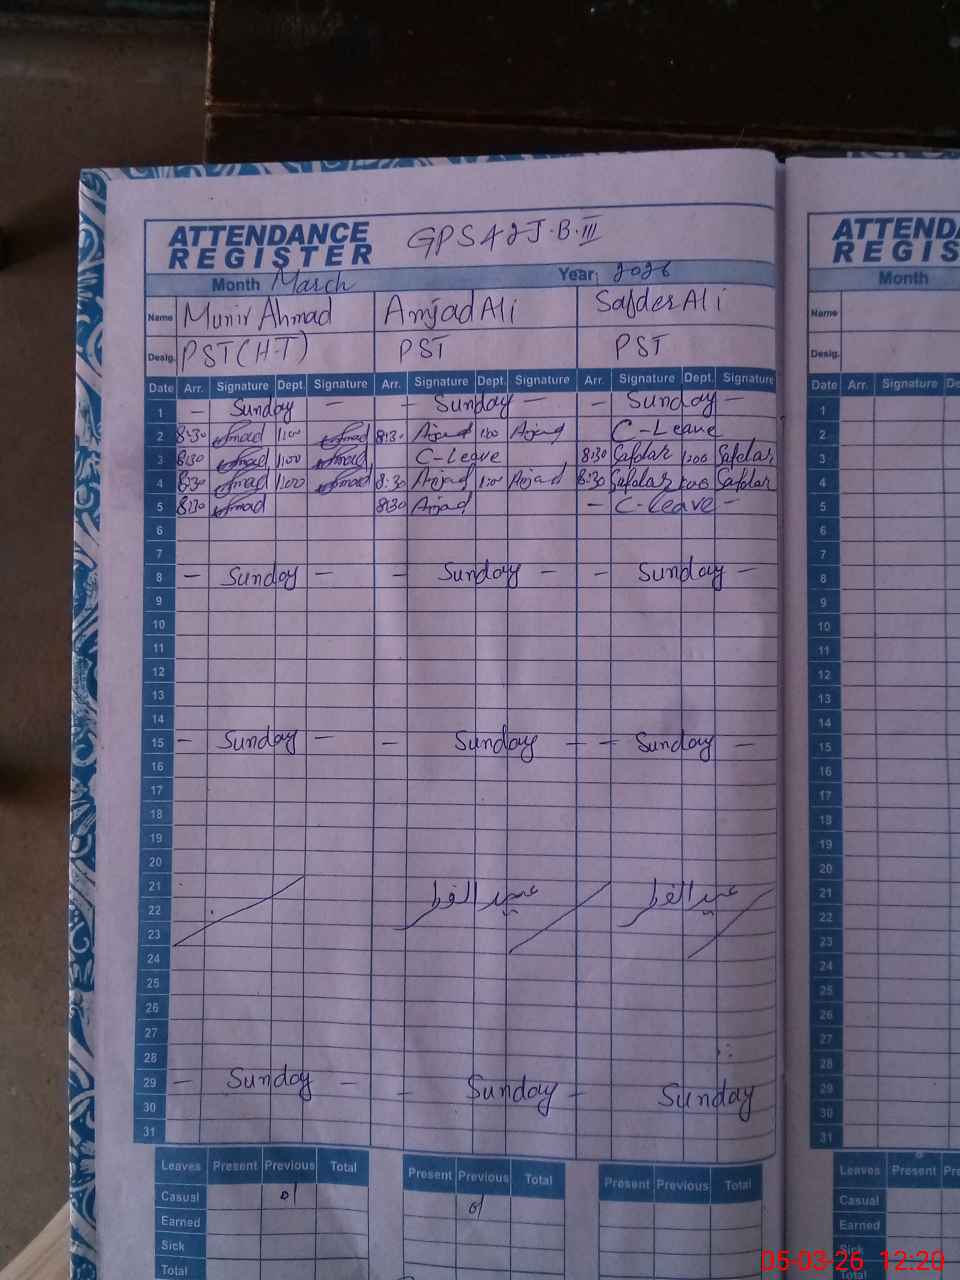 ATTENDANCE REGISTER GPS 42 J.B.III
Month March Year 2026
Name Munir Ahmad Amjad Ali Safder Ali
Desig. PST (H-T) PST PST
Date Arr. Signature Dept. Signature Arr. Signature Dept. Signature Arr. Signature Dept. Signature
1 - Sunday - - Sunday - - Sunday -
2 8:30 Ahmad 1:00 Ahmad 8:30 Amjad 1:00 Amjad C-Leave
3 8:30 Ahmad 1:00 Ahmad C-Leave 8:30 Safdar 1:00 Safdar
4 8:30 Ahmad 1:00 Ahmad 8:30 Amjad 1:00 Amjad 8:30 Safdar 1:00 Safdar
5 8:30 Ahmad 8:30 Amjad - C-Leave -
6
7
8 - Sunday - - Sunday - - Sunday -
9
10
11
12
13
14
15 - Sunday - - Sunday - - Sunday -
16
17
18
19
20
21 عید الفطر عید الفطر
22
23
24
25
26
27
28
29 - Sunday - - Sunday - Sunday
30
31
Leaves Present Previous Total Present Previous Total Present Previous Total
Casual 01 01
Earned
Sick
Total
ATTENDA
REGIS
Month
Name
Desig.
Date Arr. Signature De
1
2
3
4
5
6
7
8
9
10
11
12
13
14
15
16
17
18
19
20
21
22
23
24
25
26
27
28
29
30
31
Leaves Present Pre
Casual
Earned
Sick
Total
05-03-26 12:20